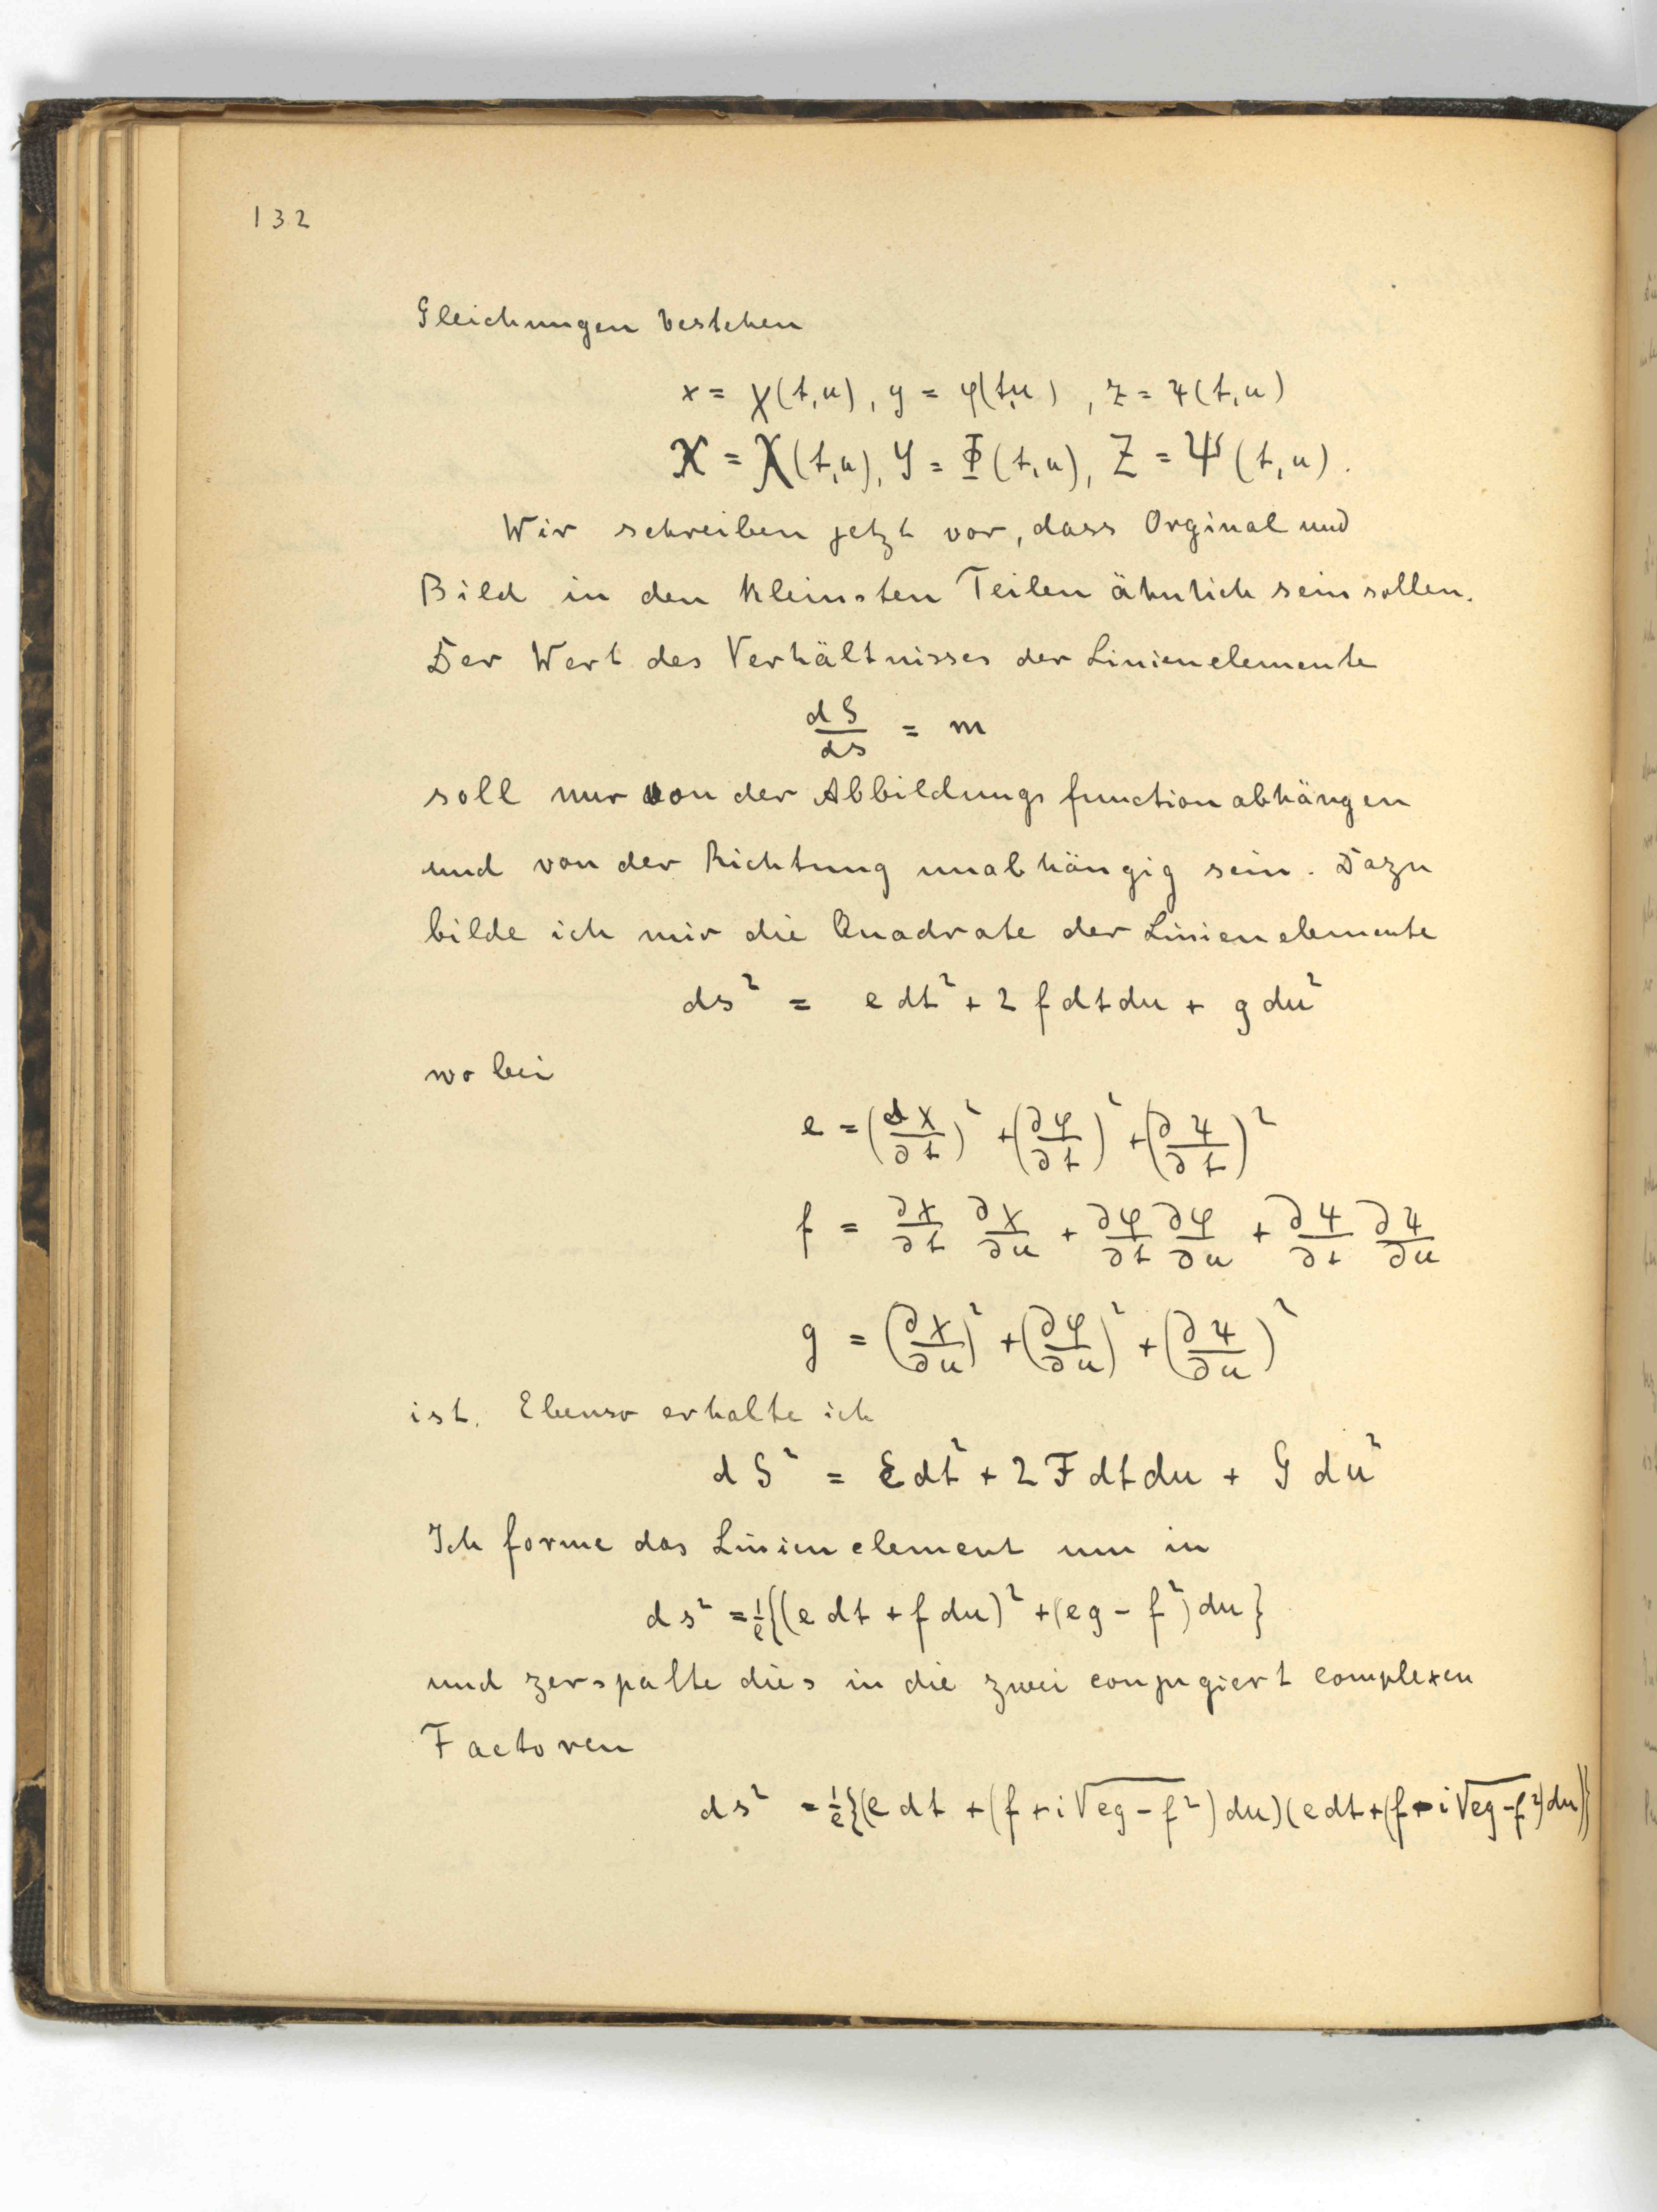 132
Gleichungen bestehen
x = χ(t,u), y = φ(t,u), z = ψ(t,u)
X = Χ(t,u), Y = Φ(t,u), Z = Ψ(t,u).
Wir schreiben jetzt vor, dass Orginal und
Bild in den kleinsten Teilen ähnlich sein sollen.
Der Wert des Verhältnisses der Linienelemente
dS/ds = m
soll nur von der Abbildungsfunction abhängen
und von der Richtung unabhängig sein. Dazu
bilde ich mir die Quadrate der Linienelemente
ds² = e dt² + 2 f dt du + g du²
wobei
e = (∂χ/∂t)² + (∂φ/∂t)² + (∂ψ/∂t)²
f = ∂χ/∂t ∂χ/∂u + ∂φ/∂t ∂φ/∂u + ∂ψ/∂t ∂ψ/∂u
g = (∂χ/∂u)² + (∂φ/∂u)² + (∂ψ/∂u)²
ist. Ebenso erhalte ich
dS² = E dt² + 2 F dt du + G du²
Ich forme das Linienelement um in
ds² = 1/e {(e dt + f du)² + (eg - f²) du}
und zerspalte dies in die zwei conjugiert complexen
Factoren
ds² = 1/e {(e dt + (f + i √eg - f²) du)(e dt + (f - i √eg - f²) du)}